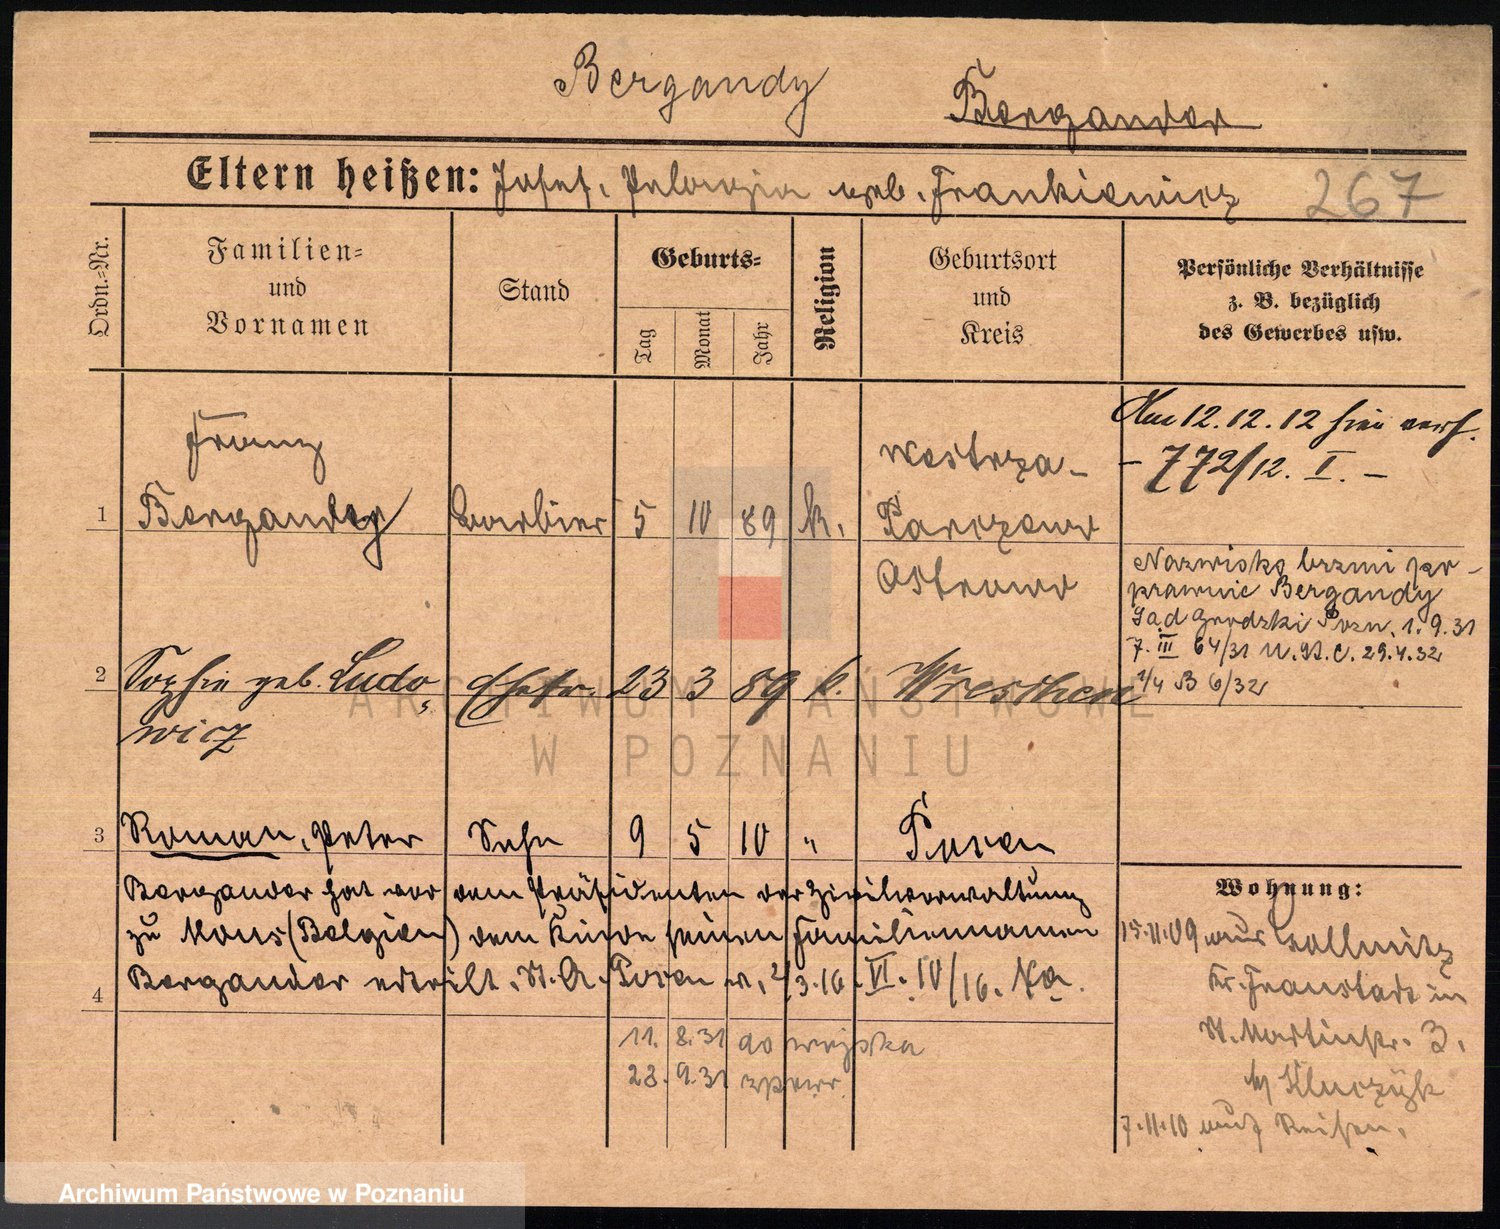 Bergandy
Bergander
Eltern heißen: Josef, Pelagia geb. Frankiewicz
267
Ordn.=Nr.
Familien=
und
Vornamen
Stand
Geburts=
Tag
Monat
Jahr
Religion
Geburtsort
und
Kreis
Persönliche Verhältnisse
z. B. bezüglich
des Gewerbes usw.
Am 12.12.12 hier verh.
- 772/12. I. -
1
Franz
Bergandy
Barbier
5
10
89
k.
Westrza-
Parczew
Ostrowo
Nazwisko brzmi po-
prawnie Bergandy
Sąd Grodzki Pozn. 1.9.31
7. III 64/31 U.St.C. 29.4.32
1/4 B 6/32
2
Sophie geb. Ludo
wicz
Ehefr.
23
3
89
k.
Wreschen
3
Roman, Peter
Sohn
9
5
10
"
Posen
Bergander hat vor dem Präsidenten der Zivilverwaltung
zu Mons (Belgien) dem Kinde seinen Familiennamen
4
Bergander erteilt. St. A. Posen v. 2/3.16. VI. 10/16.
11. 8.31 do wojska
28. 9.31 zpowr.
Wohnung:
15.11.09 aus Lollmitz
Kr. Fraustadt in
St. Martinstr. 3.
b/ Kluczyk
7.11.10 nach Reisen.
ARCHIWUM PAŃSTWOWE
W POZNANIU
Archiwum Państwowe w Poznaniu